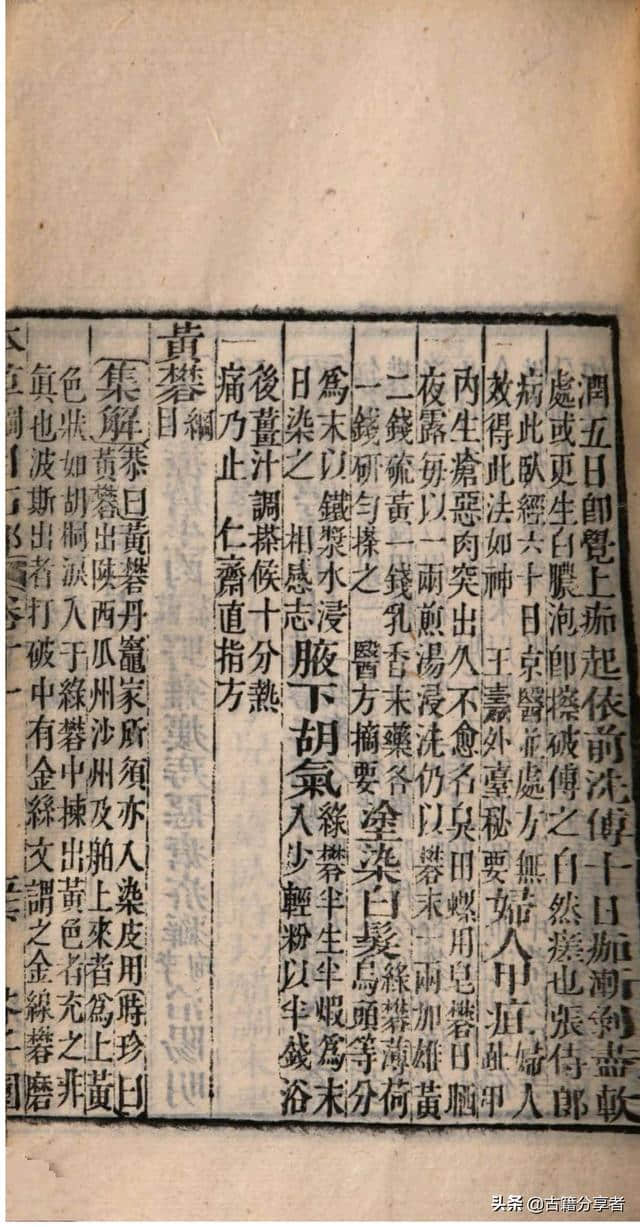 潤五日卽覺上痂起依前洗傅十日痂漸剝盡軟
處或更生白膿泡卽擦破傅之自然瘥也張侍郎
病此臥經六十日京醫並處方無
效得此法如神 王燾外臺秘要 婦人甲疽 婦人趾甲
內生瘡惡肉突出久不愈名臭田螺用皂礬日晒
夜露每以一兩煎湯浸洗仍以礬末一兩加雄黃
二錢硫黃一錢乳香末藥各
一錢研勻搽之 醫方摘要 塗染白髮 綠礬薄荷烏頭等分
爲末以鐵漿水浸
日染之 相感志 腋下胡氣 綠礬半生半煅爲末入少輕粉以半錢浴
後薑汁調搽候十分熱
痛乃止 仁齋直指方
黃礬 綱目
集解 恭曰黃礬丹竈家所須亦入染皮用時珍曰
黃礬出陝西瓜州沙州及舶上來者爲上黃
色狀如胡桐淚人于綠礬中揀出黃色者充之非
眞也波斯出者打破中有金絲文謂之金線礬磨
本草綱目石部 卷十一